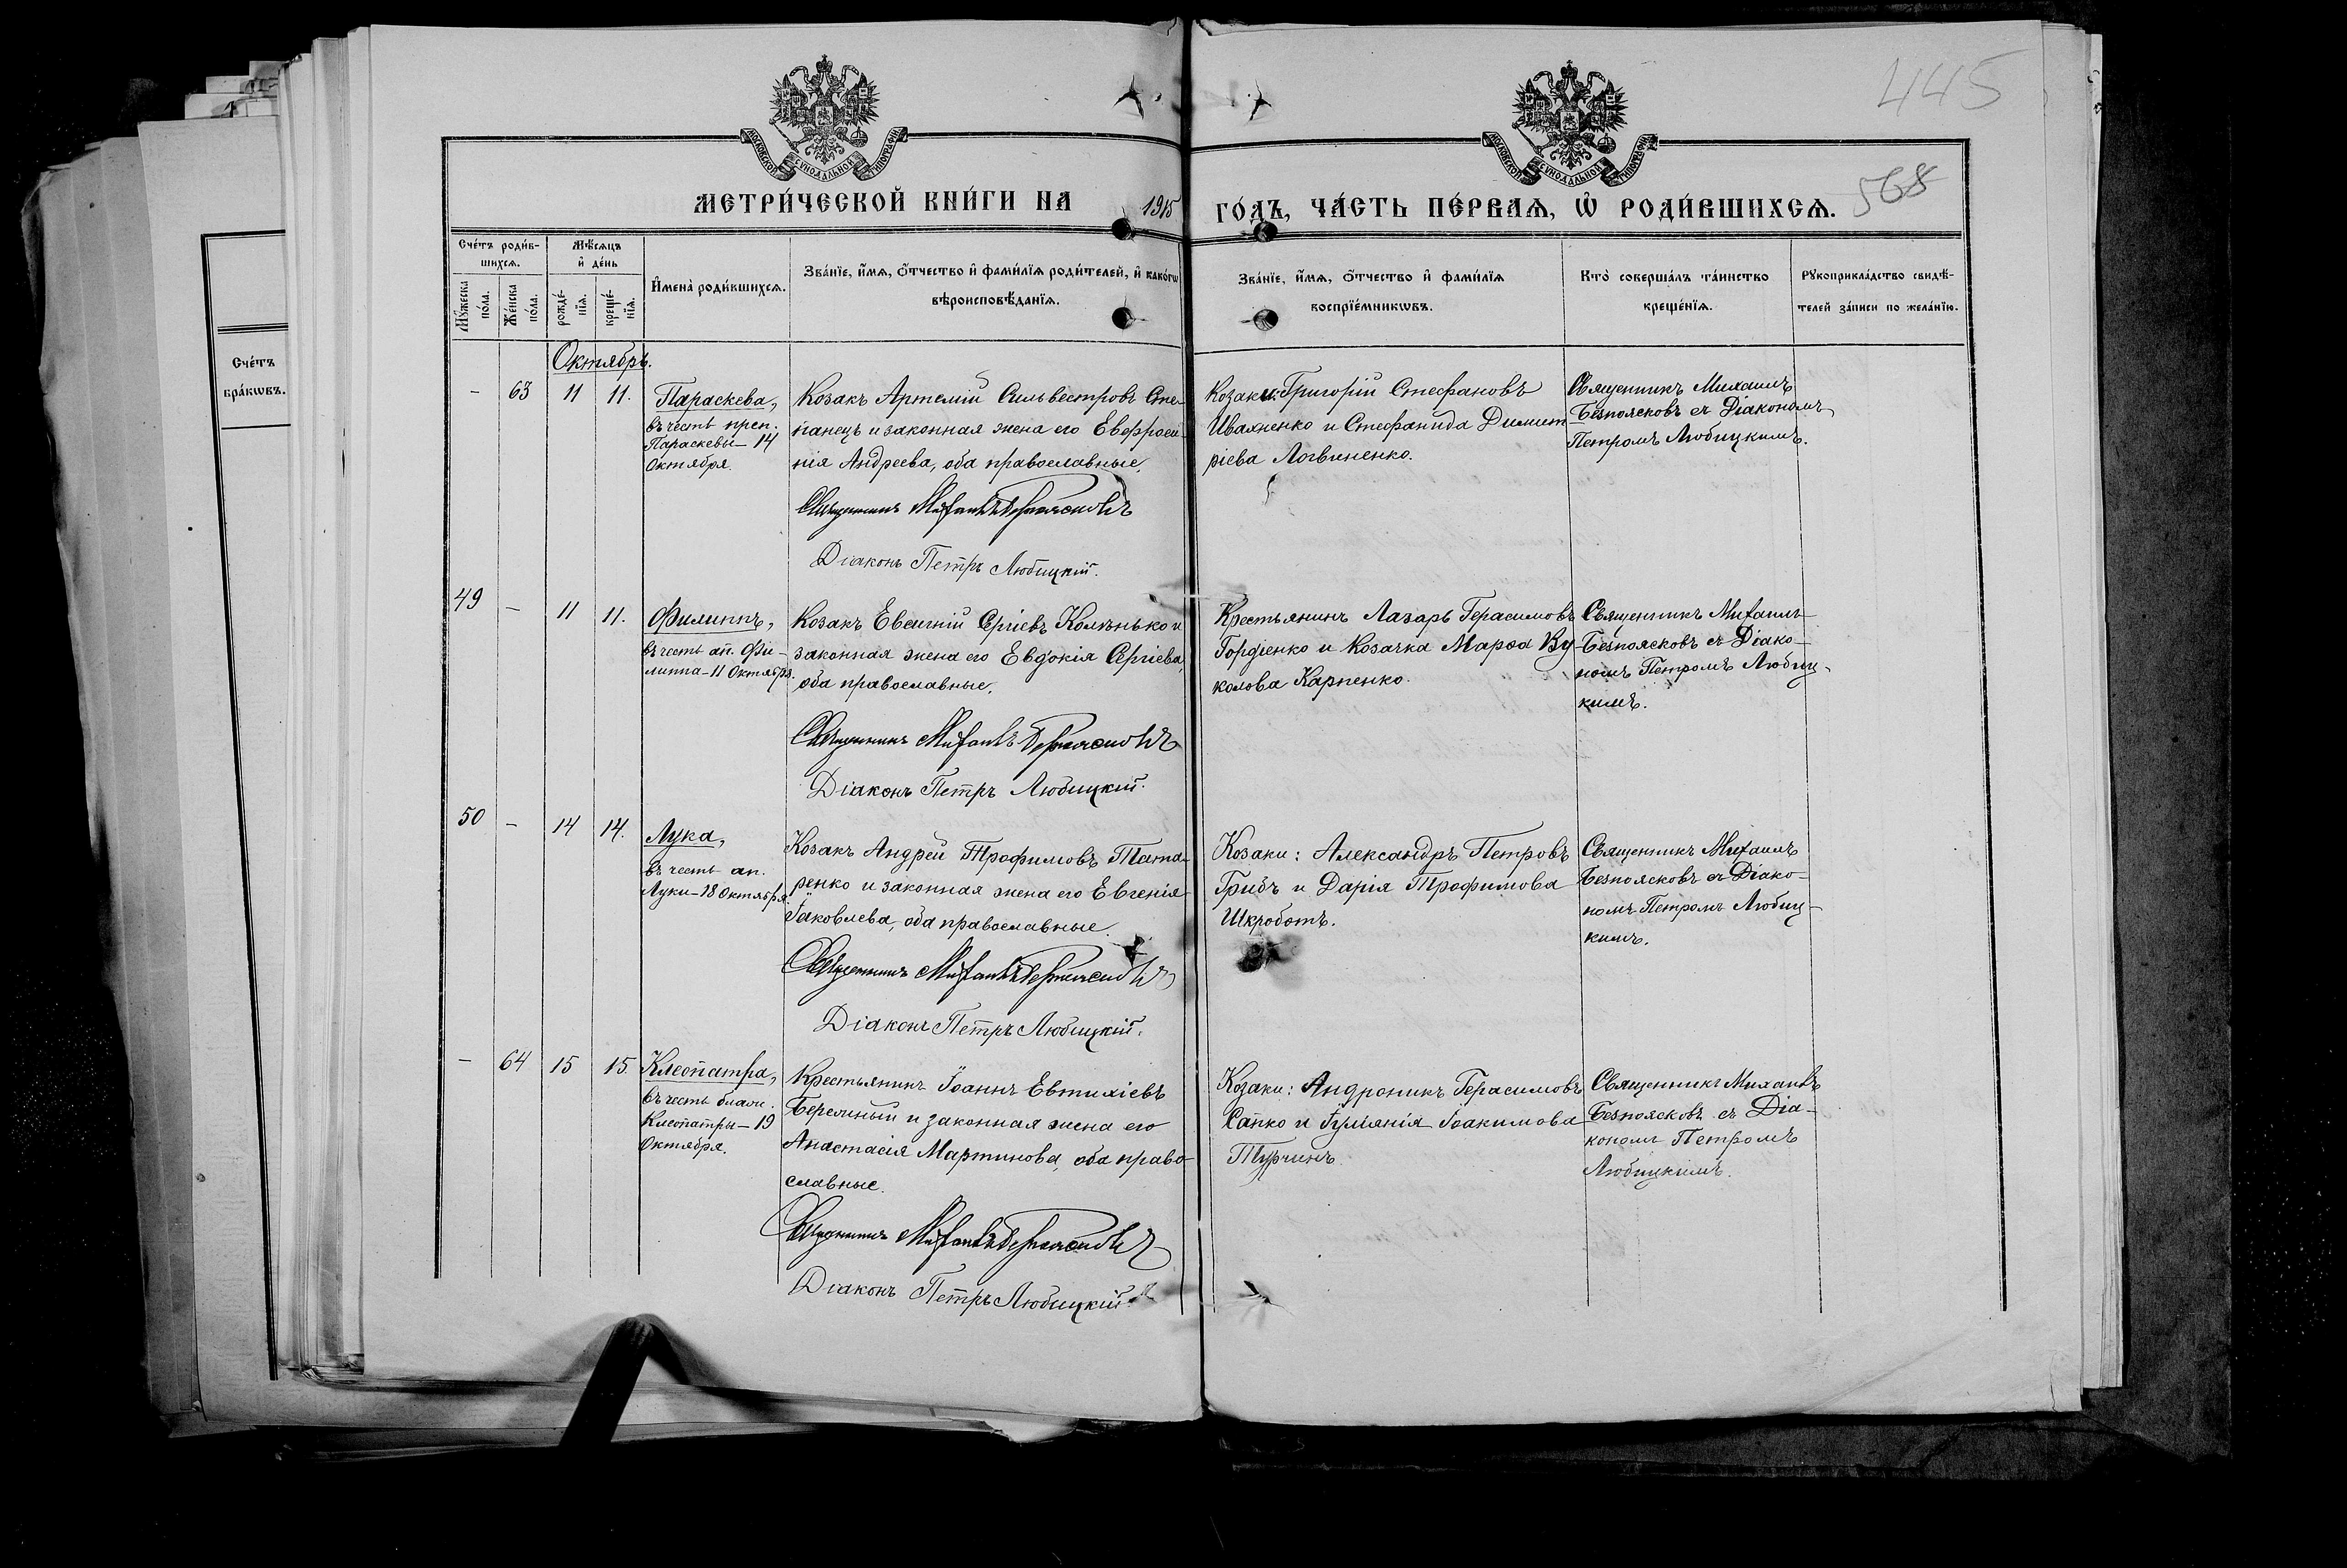 445
568
МОСКОВСКОЙ СѴНОДАЛЬНОЙ ТИПОГРАФІИ
МОСКОВСКОЙ СѴНОДАЛЬНОЙ ТИПОГРАФІИ
МЕТРИ́ЧЕСКОЙ КНИ́ГИ НА 1915 ГО́ДЪ, ЧА́СТЬ ПЕ́РВАѦ, Ѡ҆ РОДИ́ВШИХСѦ.
Сче́тъ бра́кѡвъ.
Сче́тъ роди́в-
шихсѧ.
Мѹ́жеска по́ла.
Же́нска по́ла.
Мѣ́сѧцъ
и҆ де́нь
рожде́-
нїѧ.
креще́-
нїѧ.
И҆мена̀ роди́вшихсѧ.
Зва́нїе, и҆́мѧ, ѻ҆́тчество и҆ фами́лїѧ роди́телей, и҆ како́гѡ
вѣроисповѣ́данїѧ.
Зва́нїе, и҆́мѧ, ѻ҆́тчество и҆ фами́лїѧ
воспрїе́мникѡвъ.
Кто̀ соверша́лъ та́инство
креще́нїѧ.
Рѹкоприкла́дство свидѣ́-
телей за́писи по жела́нїю.
Октябрь.
- 63 11 11.
Параскева,
въ честь преп.
Параскевы - 14
Октября.
Козакъ Артемій Сильвестровъ Сте-
панецъ и законная жена его Евфроси-
нія Андреева, оба православные.
Священникъ Михаилъ Безпоясковъ
Діаконъ Петръ Любицкій.
Козаки: Григорій Стефановъ
Ивахненко и Стефанида Димит-
ріева Логвиненко.
Священникъ Михаилъ
Безпоясковъ съ Діакономъ
Петромъ Любицкимъ.
49 - 11 11.
Филиппъ,
въ честь ап. Фи-
липпа - 11 Октября.
Козакъ Евсигній Сергіевъ Колѣнько и
законная жена его Евдокія Сергіева,
оба православные.
Священникъ Михаилъ Безпоясковъ
Діаконъ Петръ Любицкій.
Крестьянинъ Лазарь Герасимовъ
Гордіенко и Козачка Марѳа Ву-
колова Карпенко.
Священникъ Михаилъ
Безпоясковъ съ Діако-
номъ Петромъ Любиц-
кимъ.
50 - 14 14.
Лука,
въ честь ап.
Луки - 18 Октября.
Козакъ Андрей Трофимовъ Тата-
ренко и законная жена его Евгенія
Іаковлева, оба православные.
Священникъ Михаилъ Безпоясковъ
Діаконъ Петръ Любицкій.
Козаки: Александръ Петровъ
Грибъ и Дарія Трофимова
Шкроботъ.
Священникъ Михаилъ
Безпоясковъ съ Діако-
номъ Петромъ Любиц-
кимъ.
- 64 15 15.
Клеопатра,
въ честь блаж.
Клеопатры - 19
Октября.
Крестьянинъ Іоаннъ Евтихіевъ
Беременный и законная жена его
Анастасія Мартинова, оба право-
славные.
Священникъ Михаилъ Безпоясковъ
Діаконъ Петръ Любицкій.
Козаки: Андроникъ Герасимовъ
Сапко и Іуліанія Іоакимова
Турчинъ.
Священникъ Михаилъ
Безпоясковъ съ Діа-
кономъ Петромъ
Любицкимъ.